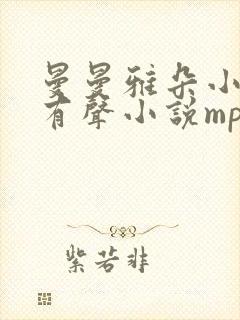 曼曼雅朵小
有聲小說mp
紫若非